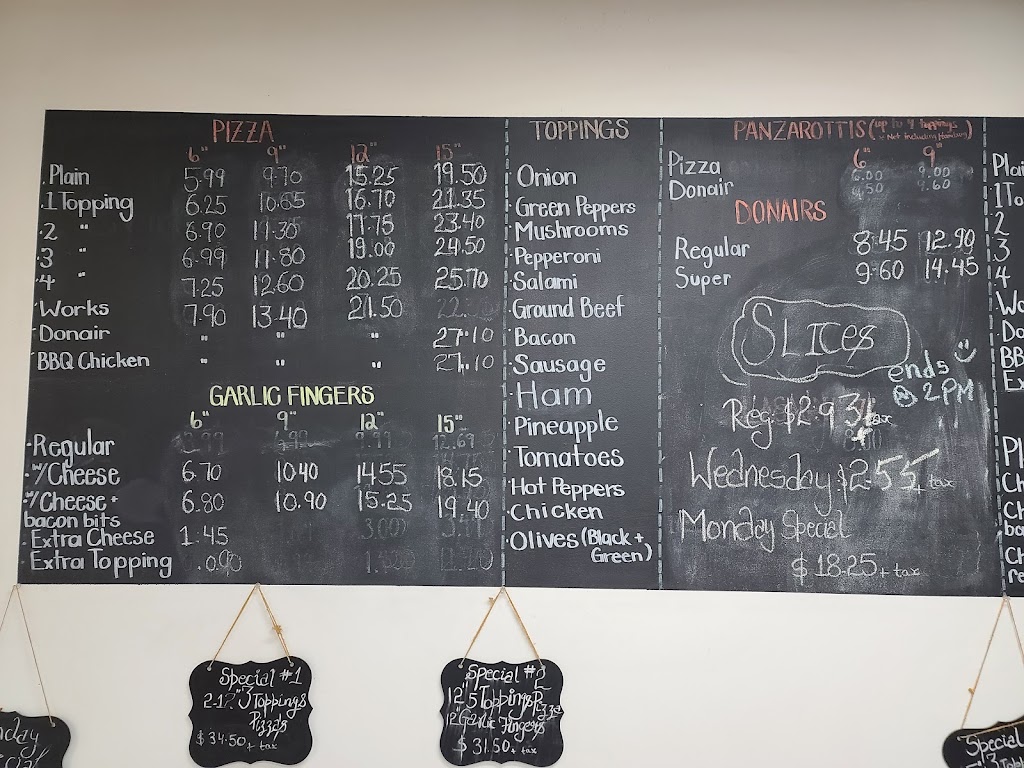 PIZZA
6" 9" 12" 15"
Plain 5.99 9.70 15.25 19.50
1 Topping 6.25 10.65 16.70 21.35
2 " 6.90 11.30 17.75 23.40
3 " 6.99 11.80 19.00 24.50
4 " 7.25 12.60 20.25 25.70
Works 7.90 13.40 21.50
Donair " " " 27.10
BBQ Chicken " " " 27.10
GARLIC FINGERS
6" 9" 12" 15"
Regular 3.99 6.99 9.99 12.69
w/Cheese 6.70 10.40 14.55 18.15
w/Cheese + 6.80 10.90 15.25 19.40
bacon bits
Extra Cheese 1.45 3.00
Extra Topping 0.90
TOPPINGS
Onion
Green Peppers
Mushrooms
Pepperoni
Salami
Ground Beef
Bacon
Sausage
Ham
Pineapple
Tomatoes
Hot Peppers
Chicken
Olives (Black +
Green)
PANZAROTTIS (up to 4 toppings
Not including Hamburg)
6" 9"
Pizza 6.00 9.00
Donair 6.50 9.60
DONAIRS
Regular 8.45 12.90
Super 9.60 14.45
SLICES
ends
@ 2PM
Reg $2.93 + tax
Wednesday $2.55 + tax
Monday Special
$18.25 + tax
Plai
1 To
2
3
4
Wo
Do
BB
Ex
Pl
Ch
Ch
ba
Ch
re
Special #1
2-12" 3 Toppings
Pizzas
$34.50 + tax
Special #2
12" 5 Toppings Pizza
12" Garlic Fingers
$31.50 + tax
nday
Special
3 Topp